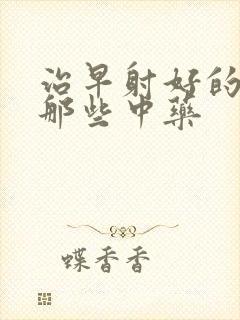 治早射好的
那些中藥
蝶香香